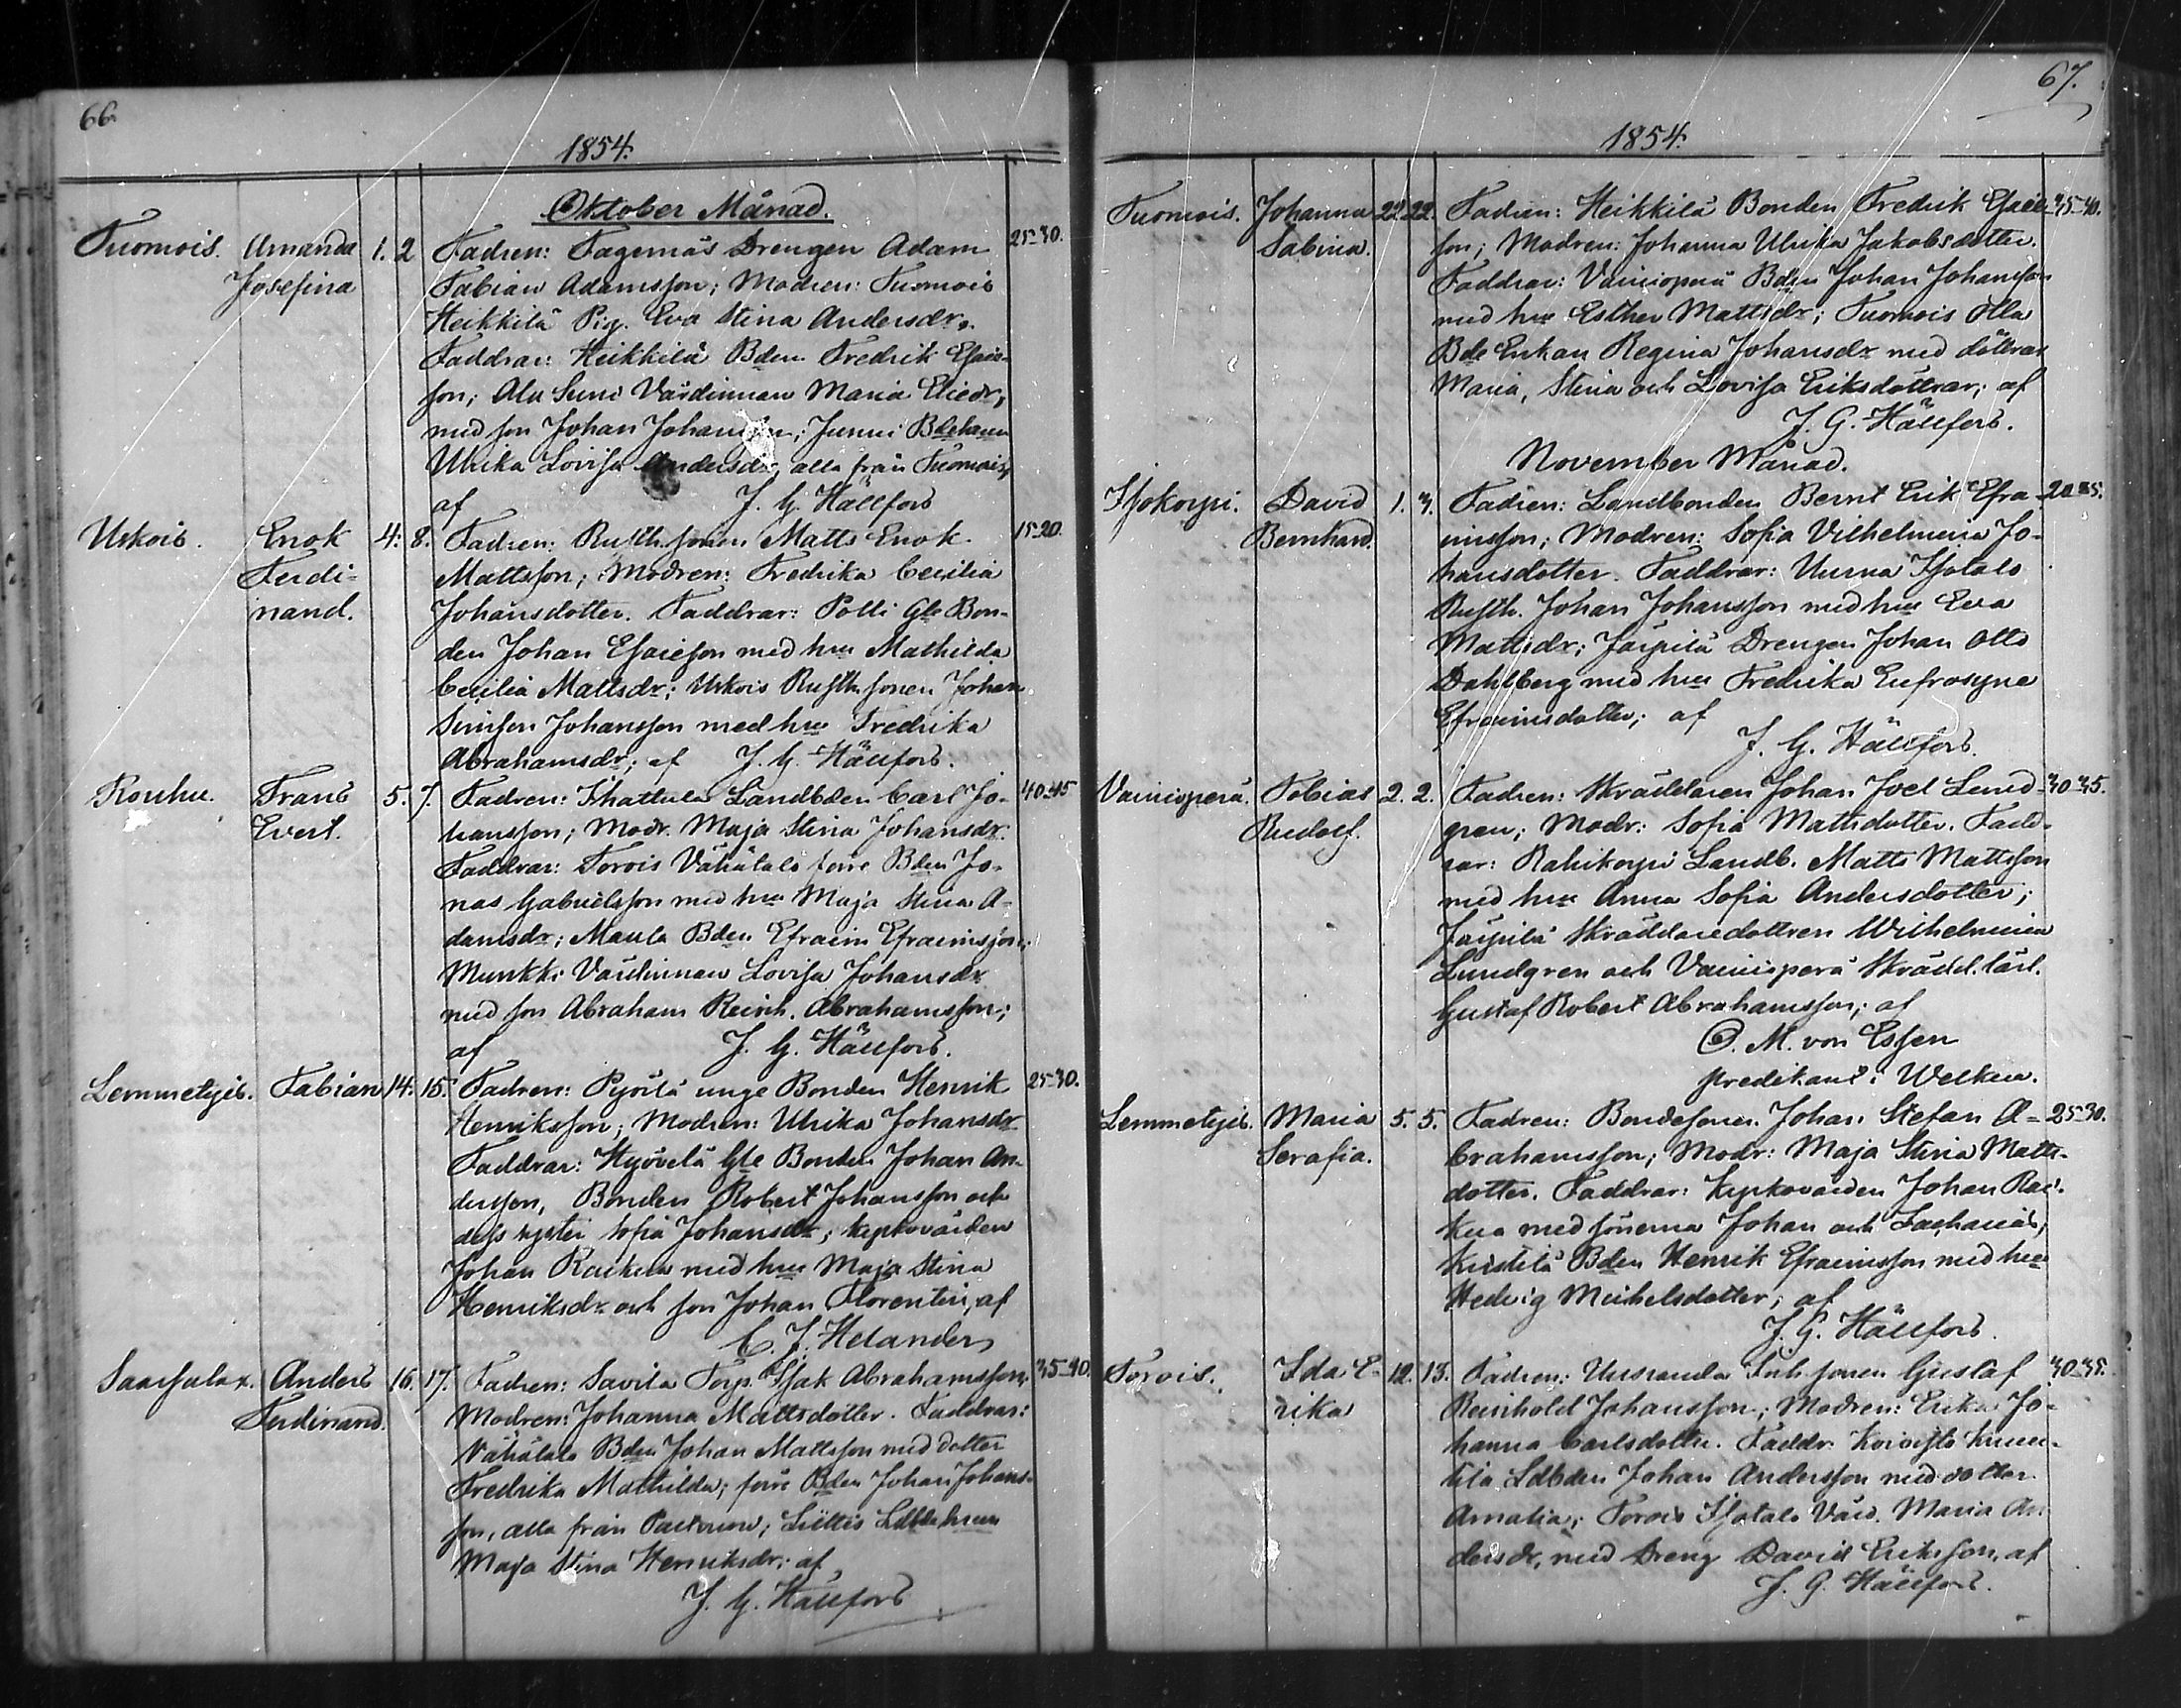 66
1854.
Oktober Månad.
Tuomois. Amanda Josefina 1. 2 Fadren: Fagernäs Drengen Adam 25-30.
Fabian Adamsson; Modren: Tuomois
Heikkilä Pig. Eva Stina Andersdr.
Faddrar: Heikkilä Bden Fredrik Esaie-
son; Ala Värdinnan Maria Eliedr,
med son Johan Johansson; Junni Bdehuun
Ulrika Lovisa Andersdr, alla från Tuomois,
af J. G. Hällfors
Uskois. Enok Ferdi-nand. 4. 8. Fadren: Rusth. sonen Matts Enok 15-20.
Mattsson; Modren: Fredrika Cecilia
Johansdotter. Faddrar: Polli Gle Bon-
den Johan Esaieson med hu Mathilda
Cecilia Mattsdr; Uskois Rusth. sonen Johan
Simson Johansson med hu Fredrika
Abrahamsdr; af J. G. Hällfors.
Rouhu. Frans Evert. 5. 7. Fadren: Khattula Landbden Carl Jo- 40-45
hansson; Modr. Maja Stina Johansdr.
Faddrar: Torois Vähätalo förre Bden Jo-
nas Gabrielsson med hu Maja Stina A-
damsdr; Maula Bden Efraim Efraimsson;
Munkki Värdinnan Lovisa Johansdr
med son Abraham Reinh. Abrahamsson;
af J. G. Hällfors.
Lemmetyis. Fabian 14. 15. Fadren: Pyörlä unge Bonden Henrik 25-30.
Henriksson; Modren: Ulrika Johansdr
Faddrar: Hyövelä Gle Bonden Johan An-
dersson, Bonden Robert Johansson och
dess syster Sofia Johansdr; Kyrkovärden
Johan Raikua med hu Maja Stina
Henriksdr och son Johan Florentin, af
C. J. Helander
Saarsalax. Anders Ferdinand. 16. 17. Fadren: Savila Torp. Isak Abrahamsson; 35-40.
Modren: Johanna Mattsdotter. Faddrar:
Vähätalo Bden Johan Mattsson med dotter
Fredrika Mathilda; förre Bden Johan Johans-
son, alla från
Maja Stina Henriksdr; af
J. G. Hällfors
67.
1854.
Tuomois. Johanna Sabina. 22 22. Fadren: Heikkilä Bonden Fredrik Esaie- 35-40.
son; Modren: Johanna Ulrika Jakobsdotter.
Faddrar: Vainionperä Bden Johan Johansson
med hu Esther Mattsdr; Tuomois Olla
Bde Enkan Regina Johansdr med döttrar
Maria, Stina och Lovisa Eriksdöttrar; af
J. G. Hällfors.
November Månad.
Isokorpi. David Bernhard. 1. 3. Fadren: Landbonden Bernt Erik Efra- 20-25.
imsson; Modren: Sofia Vilhelmina Jo-
hansdotter. Faddrar: Isotalo
Rusth. Johan Johansson med hu Eva
Mattsdr; Järpilä Drengen Johan Otto
Dahlberg med hu Fredrika Eufrosyne
Efraimsdotter; af
J. G. Hällfors.
Vainioperä. Tobias Rudolf. 2. 2. Fadren: Skräddaren Johan Joel Lund- 30-35.
gren; Modr: Sofia Mattsdotter. Fadd-
rar: Rahikorpi Landb. Matts Mattsson
med hu Anna Sofia Andersdotter;
Järpilä Skräddaredottren Wilhelmina
Lundgren och Vainioperä Skrädd. lärl.
Gustaf Robert Abrahamsson; af
O. M. von Essen
predikant i Welkua.
Lemmetyis. Maria Serafia. 5. 5. Fadren: Bondesonen Johan Stefan A- 25-30.
brahamsson; Modr: Maja Stina Matts-
dotter. Faddrar: Kyrkovärden Johan Rai-
kua med sönerna Johan och Zacharias,
Kristilä Bden Henrik Efraimsson med hu
Hedvig Michelsdotter; af
J. G. Hällfors.
Torois. Ida E-rika 12. 13. Fadren: Inh. sonen Gustaf 30-35.
Reinhold Johansson; Modren: Erika Jo-
hanna Carlsdotter. Faddr.
Ldbden Johan Andersson med dotter
Amalia; Torois Isotalo Värd. Maria An-
dersdr, med Dreng David Eriksson, af
J. G. Hällfors.